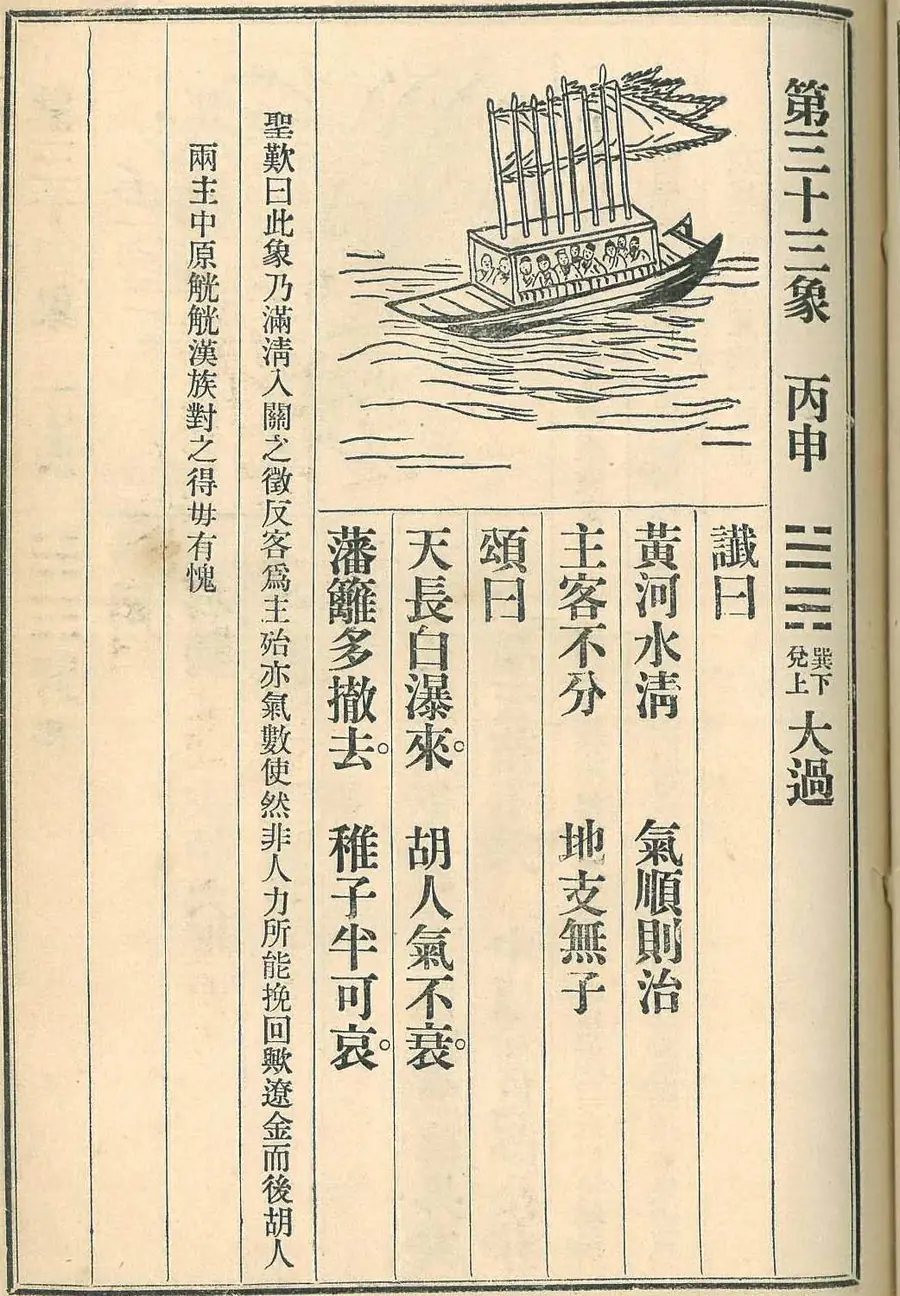 第三十三象　丙申　巽下兌上　大過
讖曰
黃河水淸　氣順則治
主客不分　地支無子
頌曰
天長白瀑來。胡人氣不衰。
藩籬多撤去。稚子半可哀。
聖歎曰此象乃滿淸入關之徵反客爲主殆亦氣數使然非人力所能挽回歟遼金而後胡人
兩主中原觥觥漢族對之得毋有愧